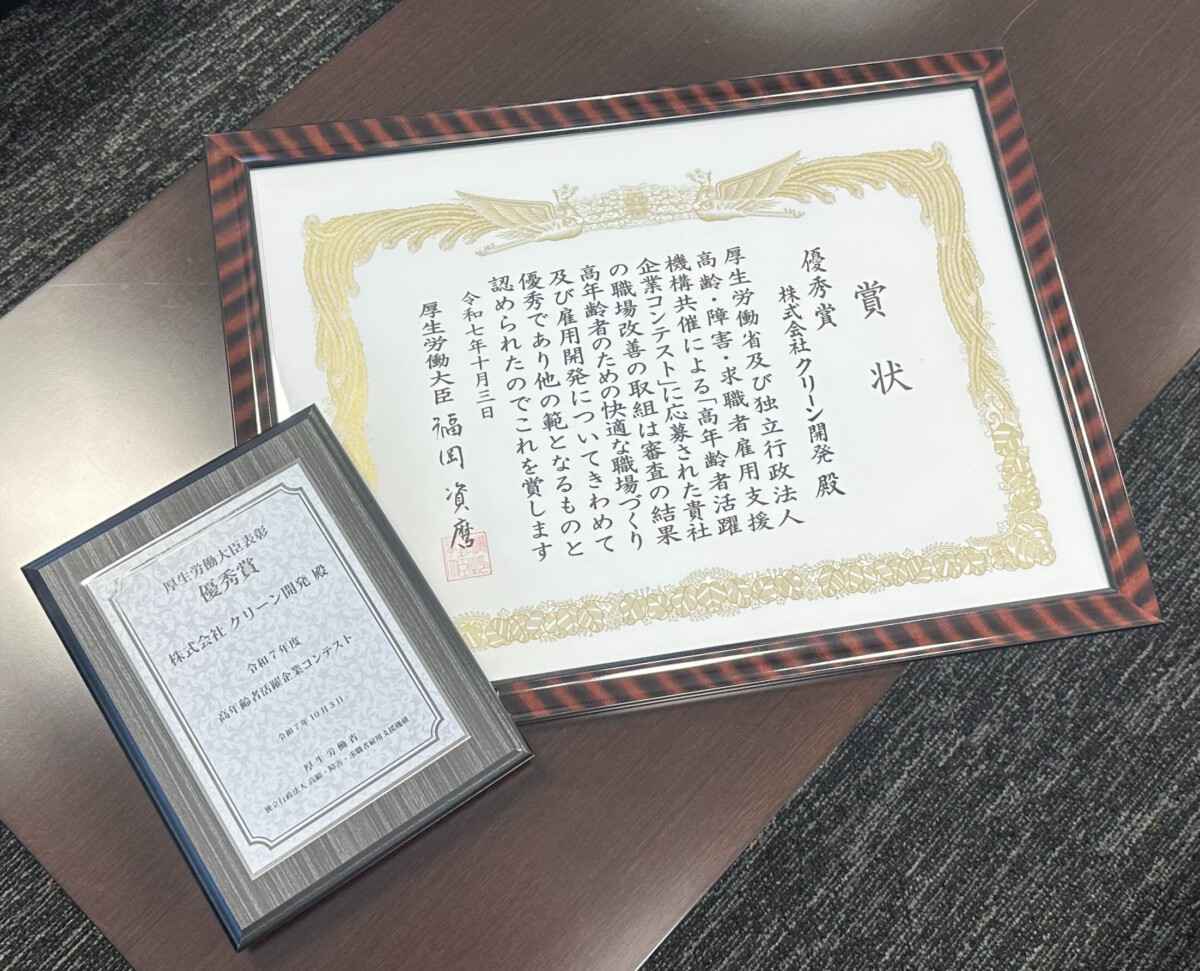 賞状
優秀賞
株式会社 クリーン開発 殿
厚生労働省及び独立行政法人
高齢・障害・求職者雇用支援
機構共催による「高年齢者活躍
企業コンテスト」に応募された貴社
の職場改善の取組は審査の結果
高年齢者のための快適な職場づくり
及び雇用開発についてきわめて
優秀であり他の範となるものと
認められたのでこれを賞します
令和七年十月三日
厚生労働大臣 福岡 資麿
厚生労働大臣表彰
優秀賞
株式会社 クリーン開発 殿
令和7年度
高年齢者活躍企業コンテスト
令和7年10月3日
厚生労働省
独立行政法人 高齢・障害・求職者雇用支援機構